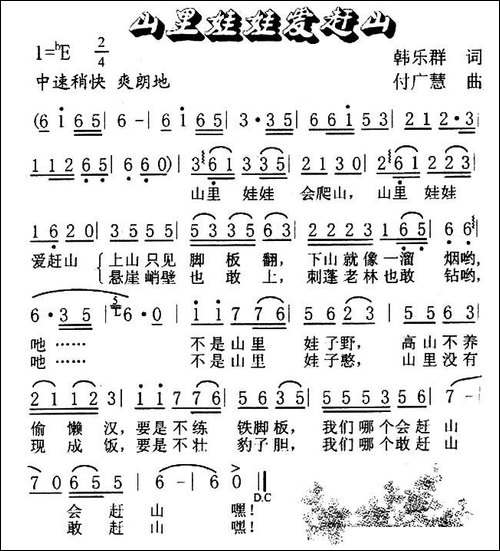 山里娃娃爱赶山
1=♭E 2/4 韩乐群 词
中速稍快 爽朗地 付广慧 曲
(6 i 6 5 | 6 - | 6 i 6 5 | 3·3 5 | 6 6 i 5 3 | 2 1 2·3 |
1 1 2 6 5 | 6 6 0) | 3 6 i 3 3 5 | 2 1 3 0 | 2 6 1 2 2 3 |
山里 娃娃 会爬山, 山里 娃娃
1 6 2 0 | 3 5 5 5 | 5 3 5 5 | 2 2 2 3 1 6 5 | 6 6 |
爱赶山 上山只见 脚板翻, 下山就像一溜 烟哟,
悬崖峭壁 也敢上, 刺蓬老林也敢 钻哟,
6·3 5 | 6·0 | i i 7 7 | 6 7 5 | 3 6 5 6 |
吔…… 不是山里 娃子野, 高山不养
吔…… 不是山里 娃子憨, 山里没有
2 1 1 2 3 | i i 7 7 6 | 5 6 3 2 | 5 5 5 3 5 6 | 7 - |
偷懒汉, 要是不练 铁脚板, 我们哪个会赶 山
现成饭, 要是不壮 豹子胆, 我们哪个敢赶 山
7 0 6 5 5 | 6 - | 6 0 :||
D.C
会赶山 嘿!
敢赶山 嘿!